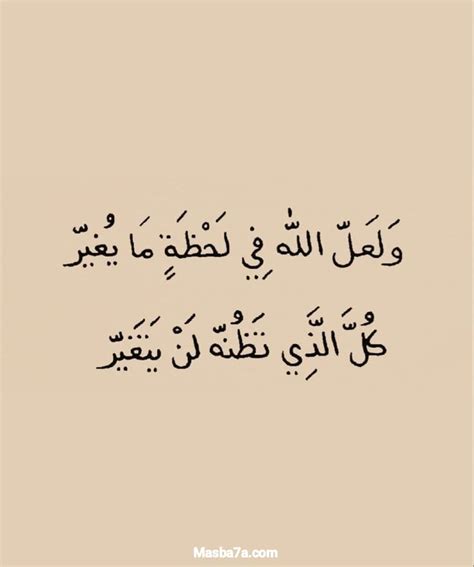 وَلَعَلّ اللّٰه فِي لَحْظَةٍ مَا يُغيّر
كُلَّ الَّذِي تَظُنّه لَنْ يَتَغيّر
Masba7a.com